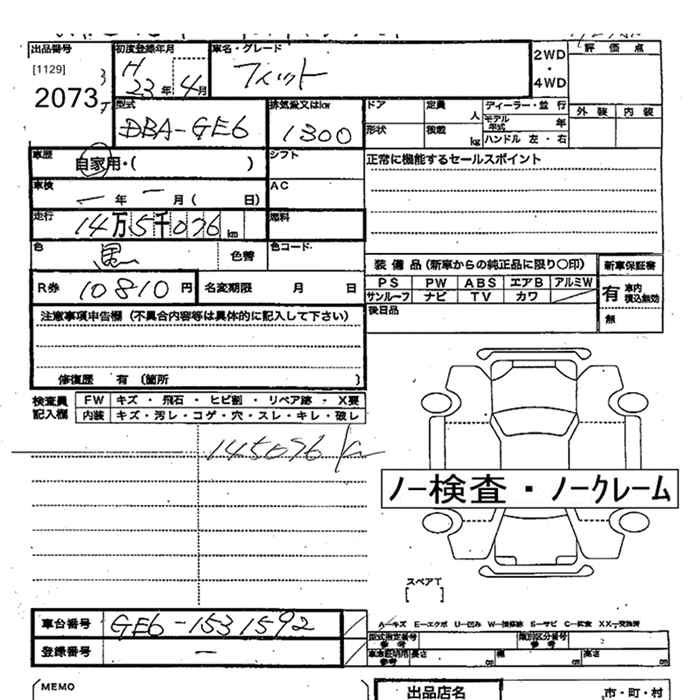 出品番号
[1129]
2073
初度登録年月
H 23 年 4 月
車名・グレード
フィット
2WD
・
4WD
評価点
外装 内装
型式
DBA-GE6
排気量又はkw
1300
ドア
定員 人
形状
積載 kg
ディーラー・並行
モデル年式 年
ハンドル 左・右
車歴
自家用・( )
シフト
正常に機能するセールスポイント
車検
ー 年 ー 月( 日)
AC
走行
14万5千076 km
燃料
色
黒
色替
色コード
装備品(新車からの純正品に限り〇印)
新車保証書
PS PW ABS エアB アルミW
サンルーフ ナビ TV カワ
有 車内積込無効
無
R券 10810 円
名変期限 月 日
後日品
注意事項申告欄(不具合内容等は具体的に記入して下さい)
修復歴 有(箇所 )
検査員記入欄
FW キズ・飛石・ヒビ割・リペア跡・X要
内装 キズ・汚レ・コゲ・穴・スレ・キレ・破レ
145076 km
ノー検査・ノークレーム
スペアT
[ ]
車台番号
GE6-1531592
登録番号
ー
A―キズ E―エクボ U―凹み W―補修跡 S―サビ C―腐食 XX―交換済
型式指定番号 参考
類別区分番号 参考
車庫証明用 参考
長さ cm
幅 cm
高さ cm
MEMO
出品店名
市・町・村